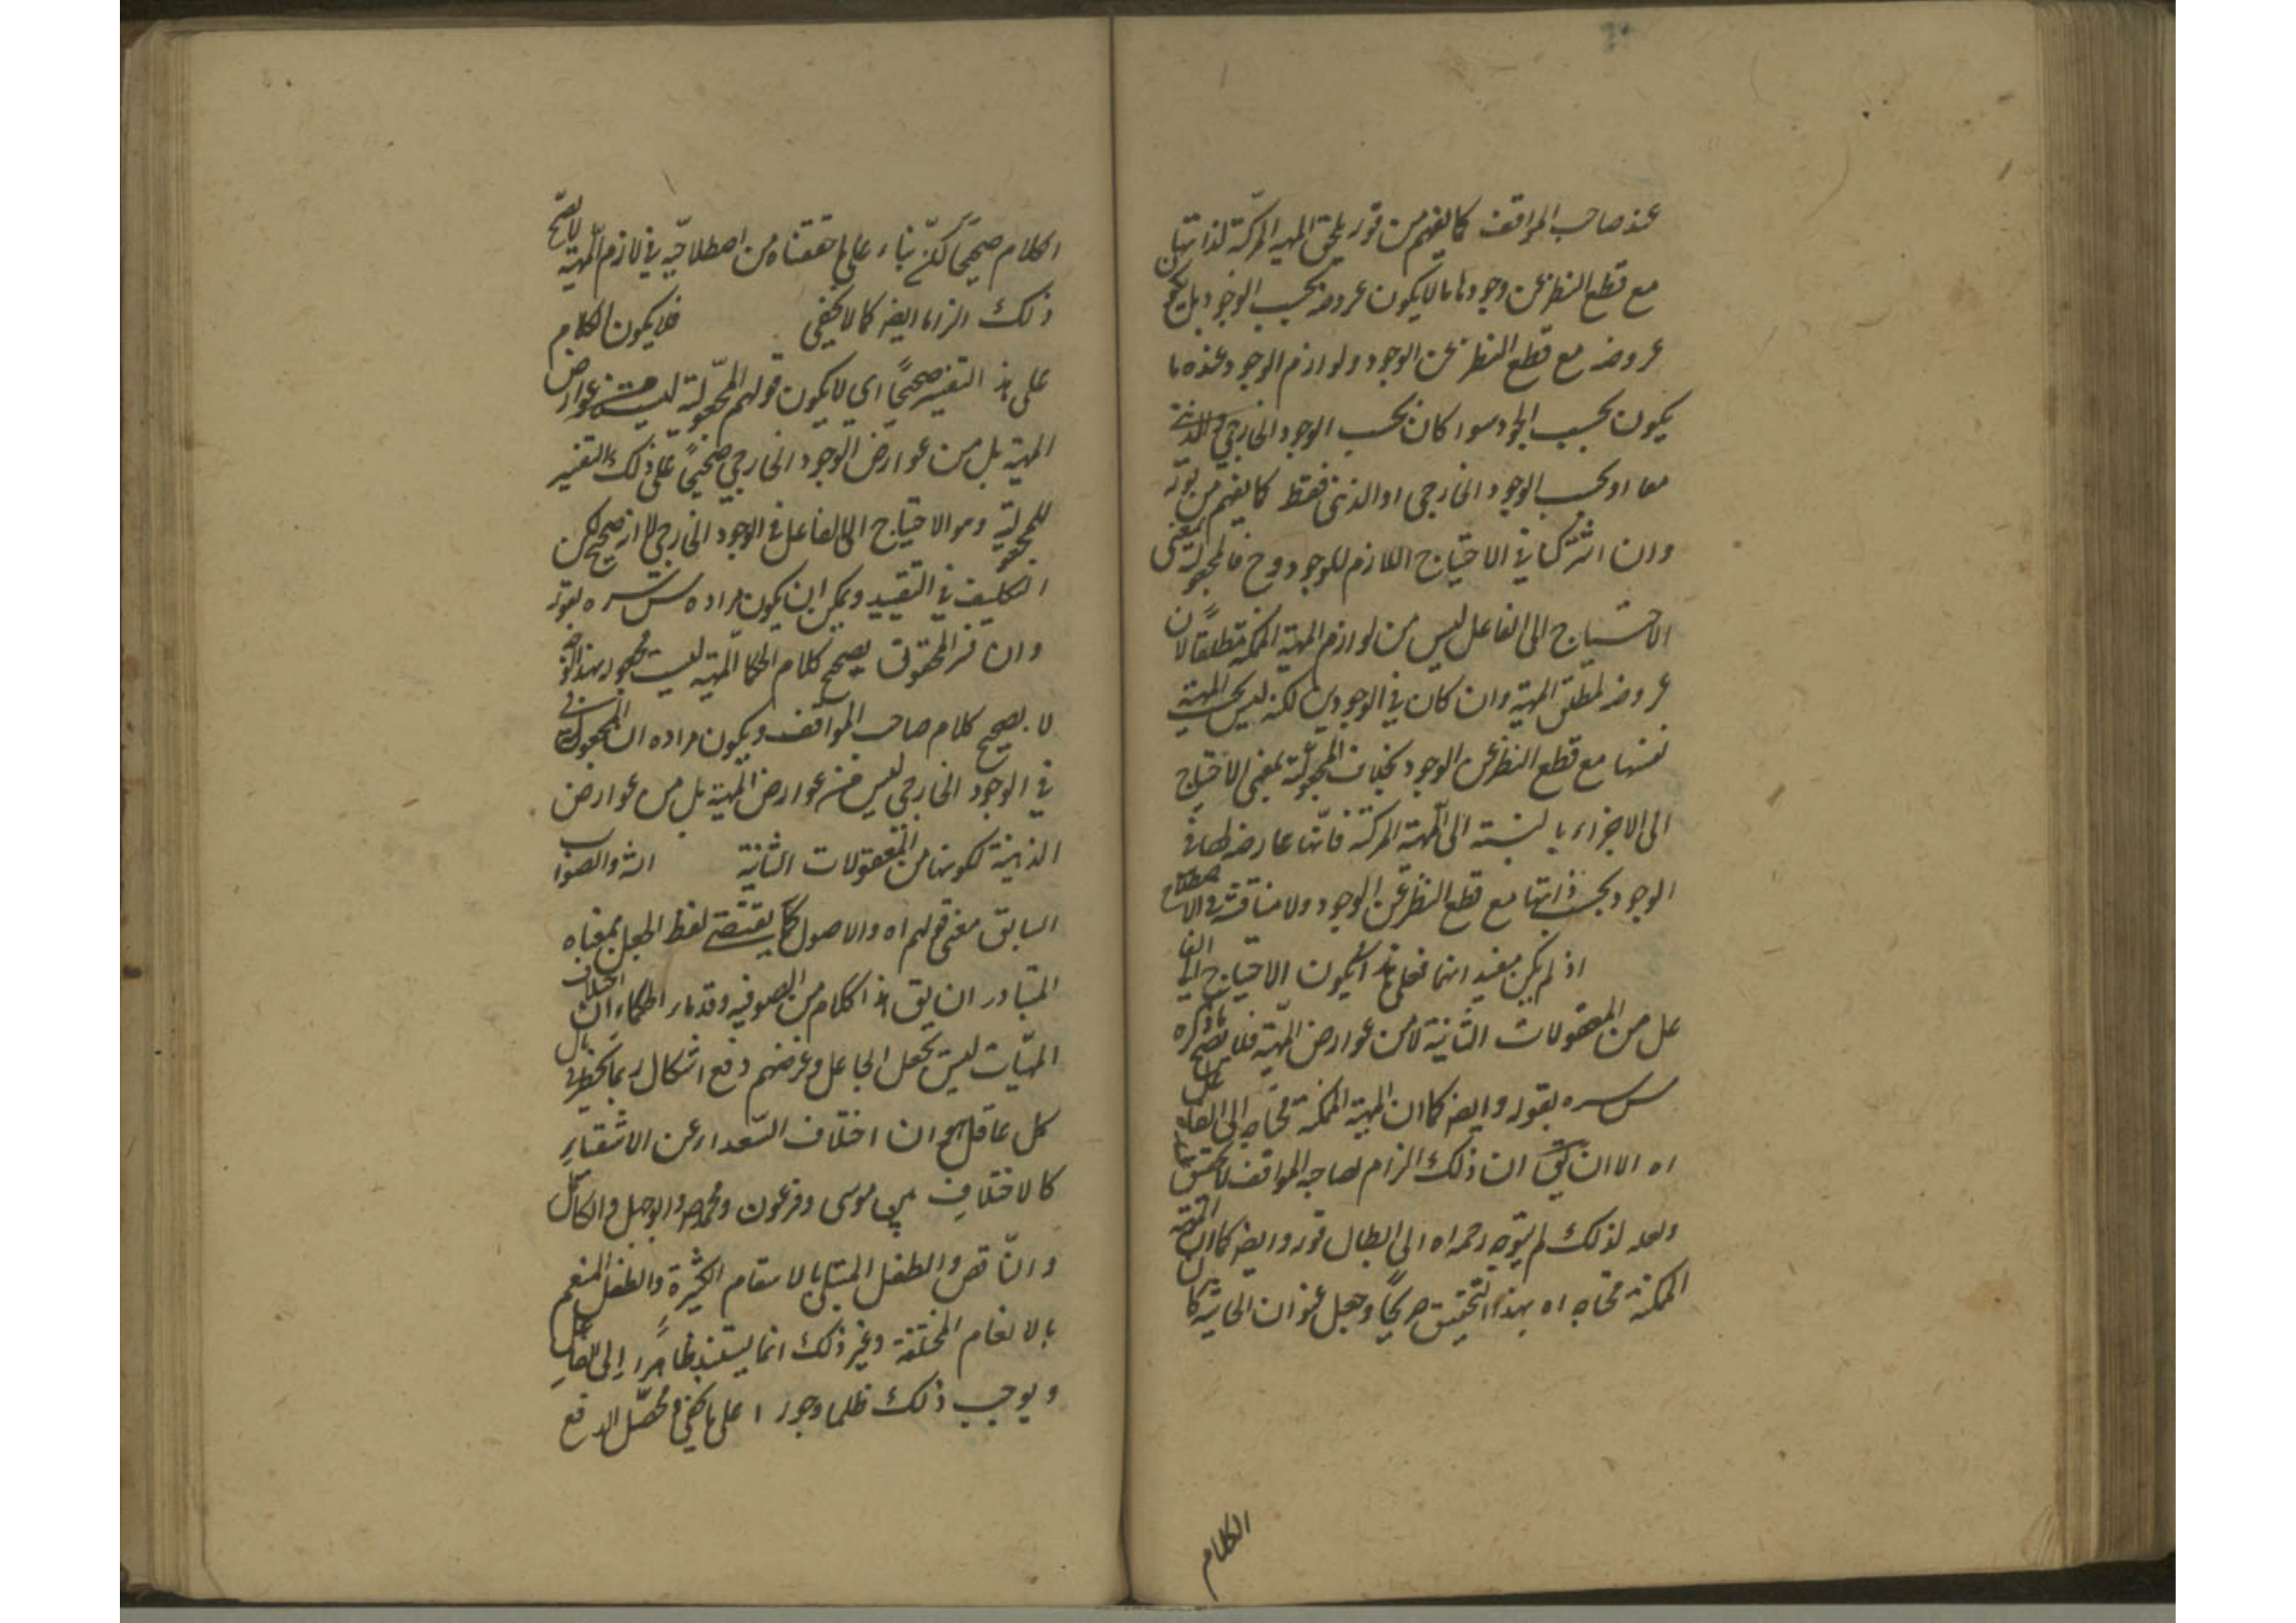 عند صاحب المواقف كما يفهم من قوله يلحق المهية المركبة لذاتها
مع قطع النظر عن وجودها ما لا يكون عروضه بحسب الوجود بل يكون
عروضه مع قطع النظر عن الوجود ولوازم الوجود عنده ما
يكون بحسب الوجود سواء كان بحسب الوجود الخارجي والذهني
معا او بحسب الوجود الخارجي او الذهني فقط كما يفهم من قوله
وان اشتركا في الاحتياج اللازم للوجود وح فالمجعولية بمعنى
الاحتياج الى الفاعل ليس من لوازم المهية الممكنة مطلقا لان
عروضه لمطلق المهية وان كان في الوجودين لكنه ليس بحسب المهية
نفسها مع قطع النظر عن الوجود بخلاف المجعولية بمعنى الاحتياج
الى الاجزاء بالنسبة الى المهية المركبة فانها عارضة لها في
الوجود بحسب ذاتها مع قطع النظر عن الوجود ولا مناقشة في الاصطلاح
اذ لم يكن مفيدا نما فعلى هذا يكون الاحتياج الى الفا
عل من المعقولات الثانية لا من عوارض المهية فلا يصح ما ذكره
س سره بقوله وايضا كما ان المهية الممكنة محتاجة الى الفاعل
اه الا ان يق ان ذلك الزام لصاحب المواقف لا تحقيق
ولعله لذلك لم يتوجه رحمه الله الى ابطال قوله وايضا كما ان المهية
الممكنة محتاجة اه بهذا التحقيق صريحا وجعل عنوان الحاشية كان
الكلام
الكلام صحيحا لكن بناء على ما حققناه من اصطلاحيه في لازم المهية لا يصح
ذلك الزاما ايضا كما لا يخفى فلا يكون الكلام
على هذا التفسير صحيحا اي لا يكون قولهم المجعولية ليست من عوارض
المهية بل من عوارض الوجود الخارجي صحيحا على ذلك التفسير
للمجعولية وهو الاحتياج الى الفاعل في الوجود الخارجي الا انه صحيح لكن
التكليف في التقييد ويمكن ان يكون مراده س سره بقوله
لا يصح كلام صاحب المواقف ويكون مراده ان المجعولية
في الوجود الخارجي ليس من عوارض المهية بل من عوارض
الذهنية لكونها من المعقولات الثانية والصواب
السابق معنى قولهم اه والاصول كما يقتضيه لفظ الجعل بمعناه
المتبادر ان يق هذا الكلام من الصوفية وقدماء الحكماء ان اختلاف
المهيات ليس بجعل الجاعل وغرضهم دفع اشكال ربما يخطر في بال
كل عاقل هو ان اختلاف السعداء عن الاشقياء
كالاختلاف بين موسى وفرعون ومحمد ص وابو جهل والكامل
والناقص والطفل المبتلى بالاسقام الكثيرة والطفل المنعم
بالانعام المختلفة وغير ذلك انما يستند ظاهرا الى الفاعل
ويوجب ذلك ظلما وجورا على ما يخفى ومحصل الدفع